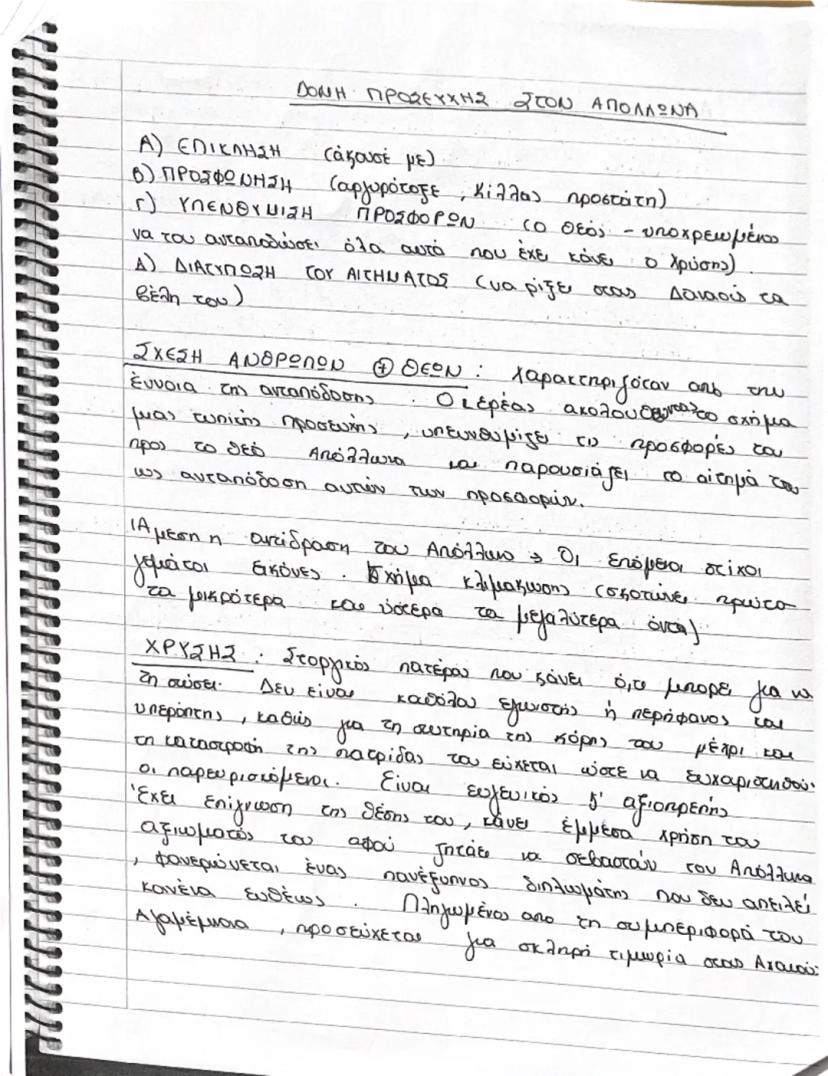 ΔΟΜΗ ΠΡΟΣΕΥΧΗΣ ΣΤΟΝ ΑΠΟΛΛΩΝΑ
Α) ΕΠΙΚΛΗΣΗ (άκουσέ με)
Β) ΠΡΟΣΦΩΝΗΣΗ (αργυρότοξε, Κίλλας προστάτη)
Γ) ΥΠΕΝΘΥΜΙΣΗ ΠΡΟΣΦΟΡΩΝ (ο θεός - υποχρεωμένος
να του ανταποδώσει όλα αυτά που έχει κάνει ο Χρύσης)
Δ) ΔΙΑΤΥΠΩΣΗ ΤΟΥ ΑΙΤΗΜΑΤΟΣ (να ρίξει στους Δαναούς τα
βέλη του)
ΣΧΕΣΗ ΑΝΘΡΩΠΩΝ + ΘΕΩΝ: Χαρακτηριζόταν απο την
έννοια της ανταπόδοσης. Ο ιερέας ακολουθώντας το σχήμα
μιας τυπικής προσευχής, υπενθυμίζει τις προσφορές του
προς το θεό Απόλλωνα και παρουσιάζει το αίτημά του
ως ανταπόδοση αυτών των προσφορών.
Άμεση η αντίδραση του Απόλλωνα → Οι επόμενοι στίχοι
γεμάτοι εικόνες. Σχήμα κλιμακωσης (σκοτώνει πρώτα
τα μικρότερα και ύστερα τα μεγαλύτερα όντα)
ΧΡΥΣΗΣ: Στοργικός πατέρας που κάνει ό,τι μπορεί για να
τη σώσει. Δεν είναι καθόλου εγωιστής ή περήφανος και
υπερόπτης, καθώς για τη σωτηρία της κόρης του μέχρι και
τη καταστροφή της πατρίδας του εύχεται ώστε να ευχαριστηθούν
οι παρευρισκόμενοι. Είναι ευγενικός κ' αξιοπρεπής
Έχει επίγνωση της θέσης του, κάνει έμμεσα χρήση του
αξιωματός του αφού ζητάει να σεβαστούν τον Απόλλωνα
, φανερώνεται ένας πανέξυπνος διπλωμάτης που δεν απειλεί
κανένα ευθέως. Πληγωμένος απο τη συμπεριφορά του
Αγαμέμνονα, προσεύχεται για σκληρή τιμωρία στους Αχαιούς